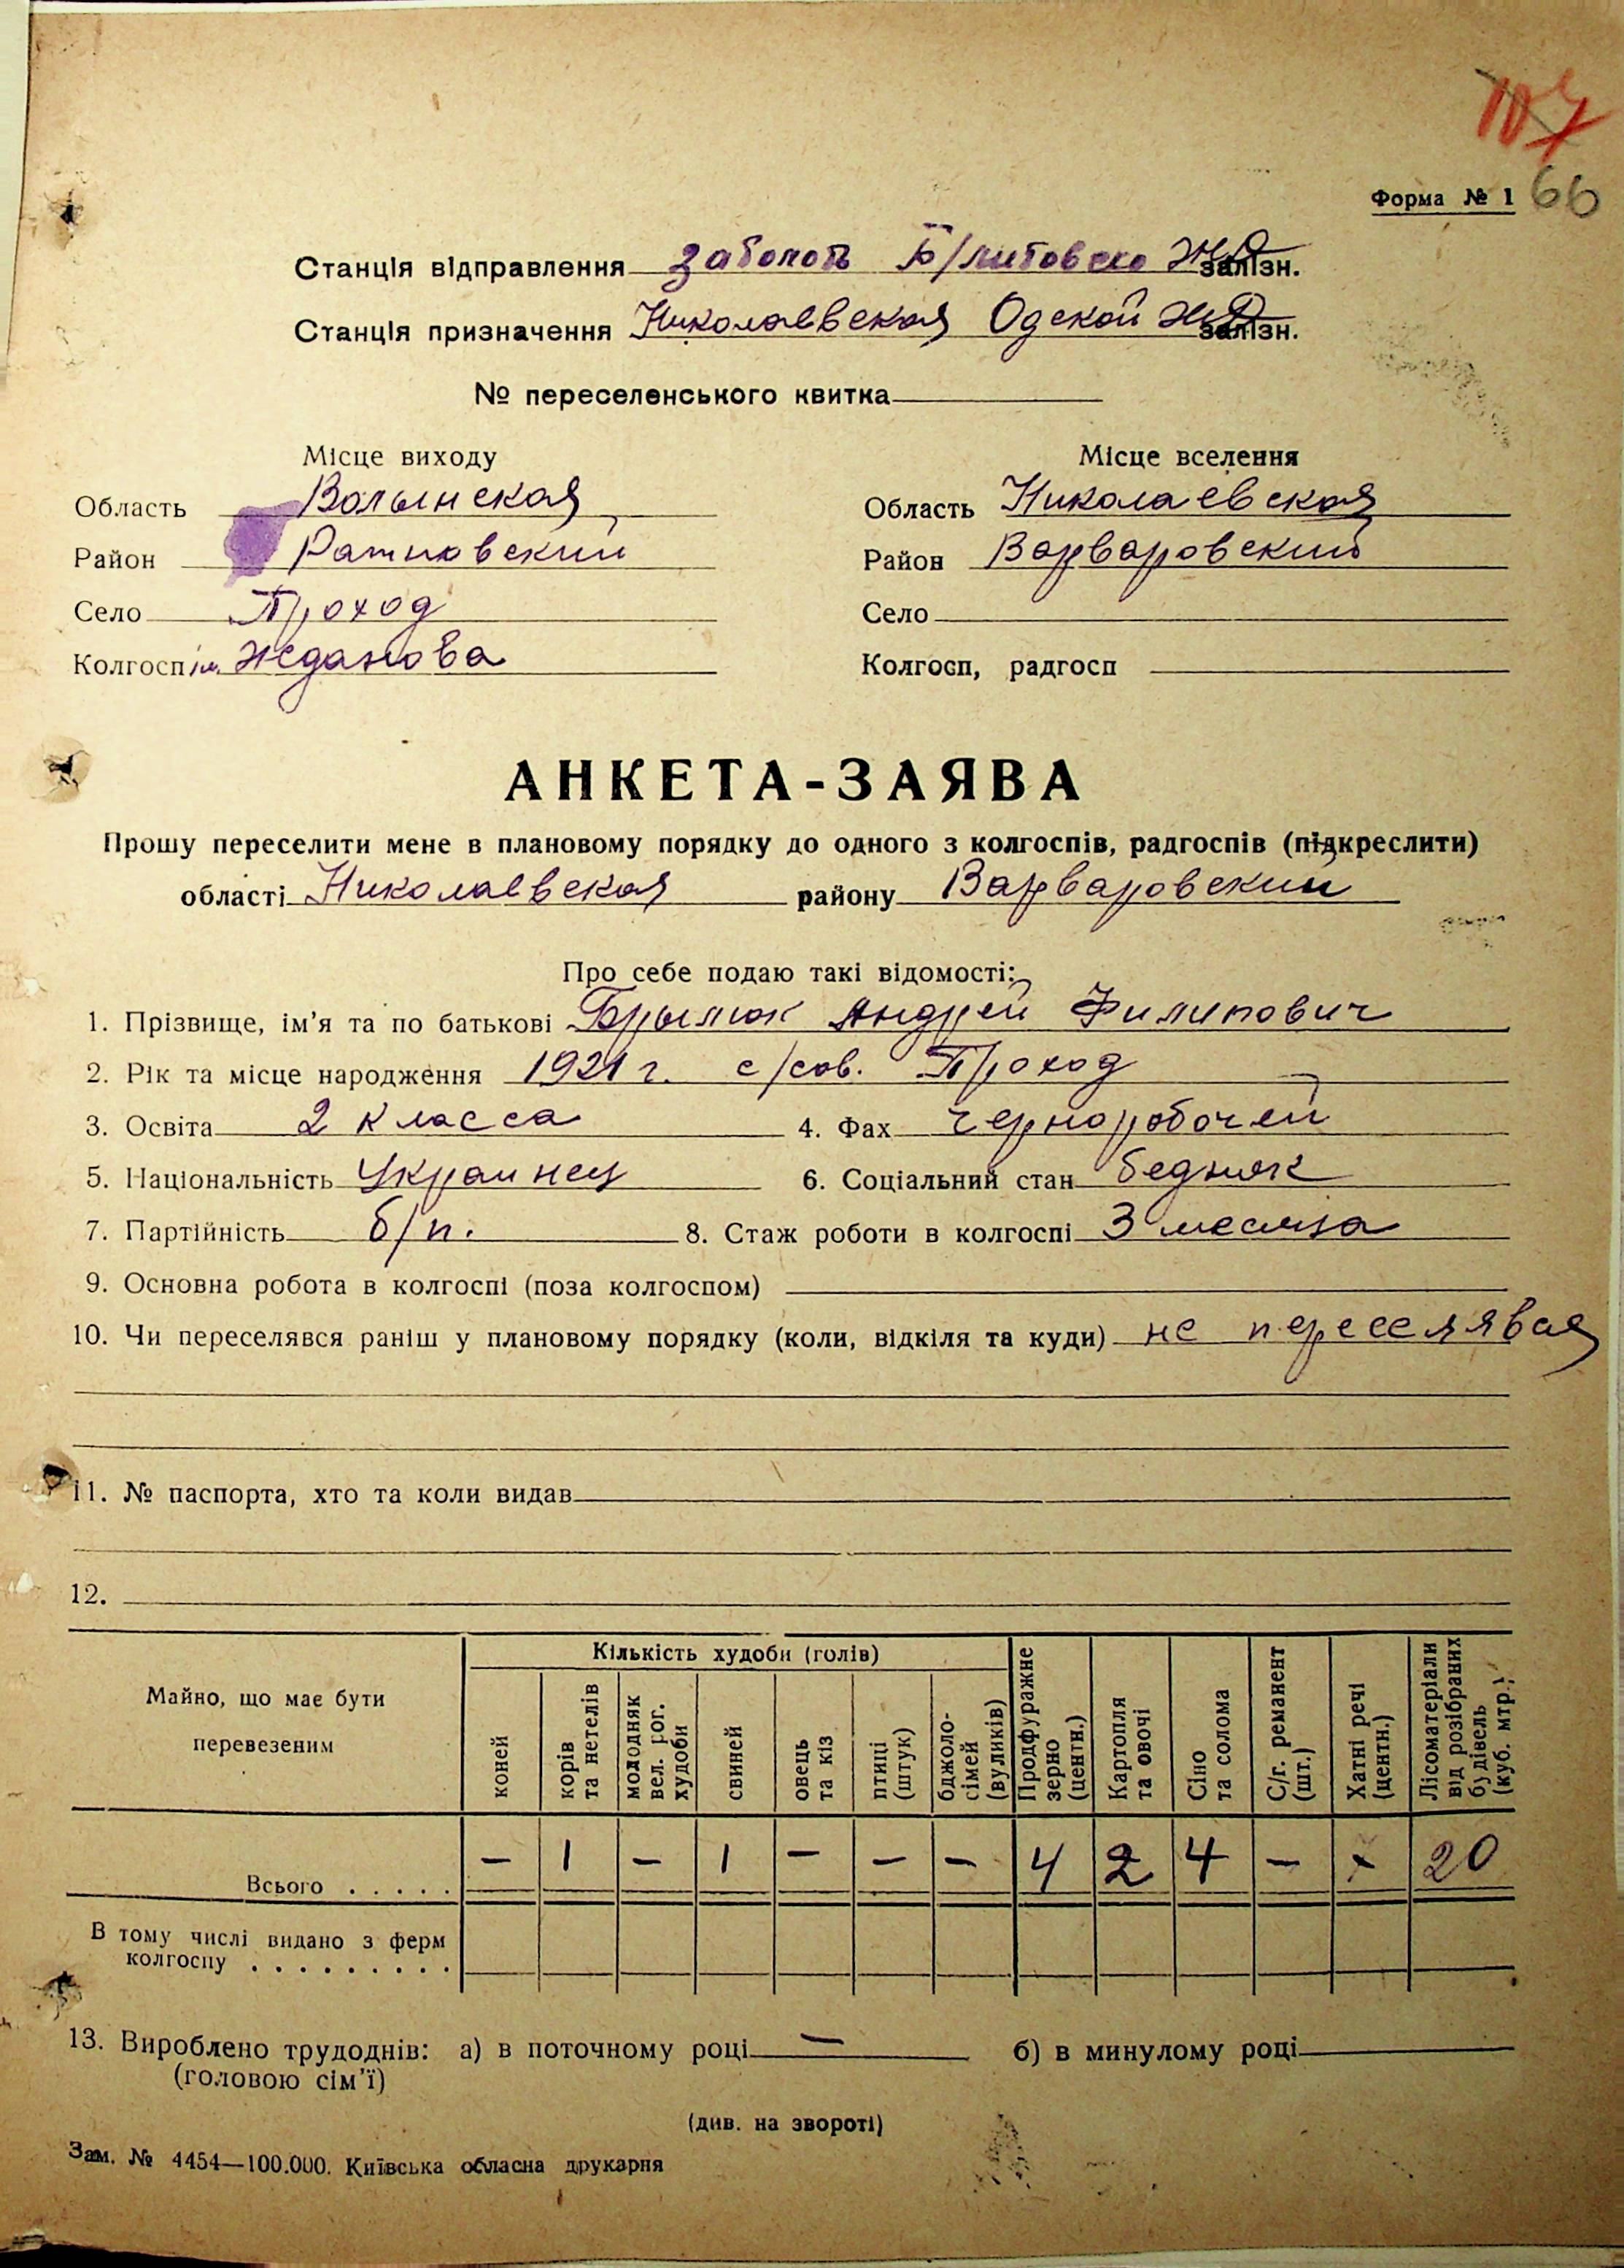 107
Форма № 1 66
Станція відправлення Заболоть Б/литовско ЖД залізн.
Станція призначення Николаевская Одской ЖД залізн.
№ переселенського квитка
Місце виходу Місце вселення
Область Волынская Область Николаевская
Район Ратновский Район Варваровский
Село Проход Село
Колгосп им. Жданова Колгосп, радгосп
АНКЕТА-ЗАЯВА
Прошу переселити мене в плановому порядку до одного з колгоспів, радгоспів (підкреслити)
області Николаевская району Варваровский
Про себе подаю такі відомості:
1. Прізвище, ім'я та по батькові Брылюк Андрей Филипович
2. Рік та місце народження 1921 г. с/сов. Проход
3. Освіта 2 класса 4. Фах черноробочей
5. Національність Украинец 6. Соціальний стан бедняк
7. Партійність б/п. 8. Стаж роботи в колгоспі 3 месяца
9. Основна робота в колгоспі (поза колгоспом)
10. Чи переселявся раніш у плановому порядку (коли, відкіля та куди) не переселявся
11. № паспорта, хто та коли видав
12.
Майно, що має бути перевезеним
Кількість худоби (голів)
коней
корів та нетелів
молодняк вел. рог. худоби
свиней
овець та кіз
птиці (штук)
бджоло-сімей (вуликів)
Продфуражне зерно (центн.)
Картопля та овочі
Сіно та солома
С/г. реманент (шт.)
Хатні речі (центн.)
Лісоматеріали від розібраних будівель (куб. мтр.)
Всього . . . . . – 1 – 1 – – – 4 2 4 – × 20
В тому числі видано з ферм
колгоспу . . . . . . . . .
13. Вироблено трудоднів: а) в поточному році — б) в минулому році
(головою сім'ї)
(див. на звороті)
Зам. № 4454—100.000. Київська обласна друкарня